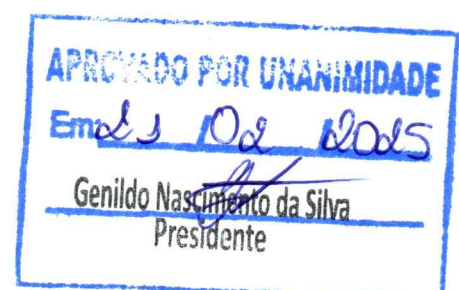 APROVADO POR UNANIMIDADE
Em 21 / 02 / 2025
Genildo Nascimento da Silva
Presidente